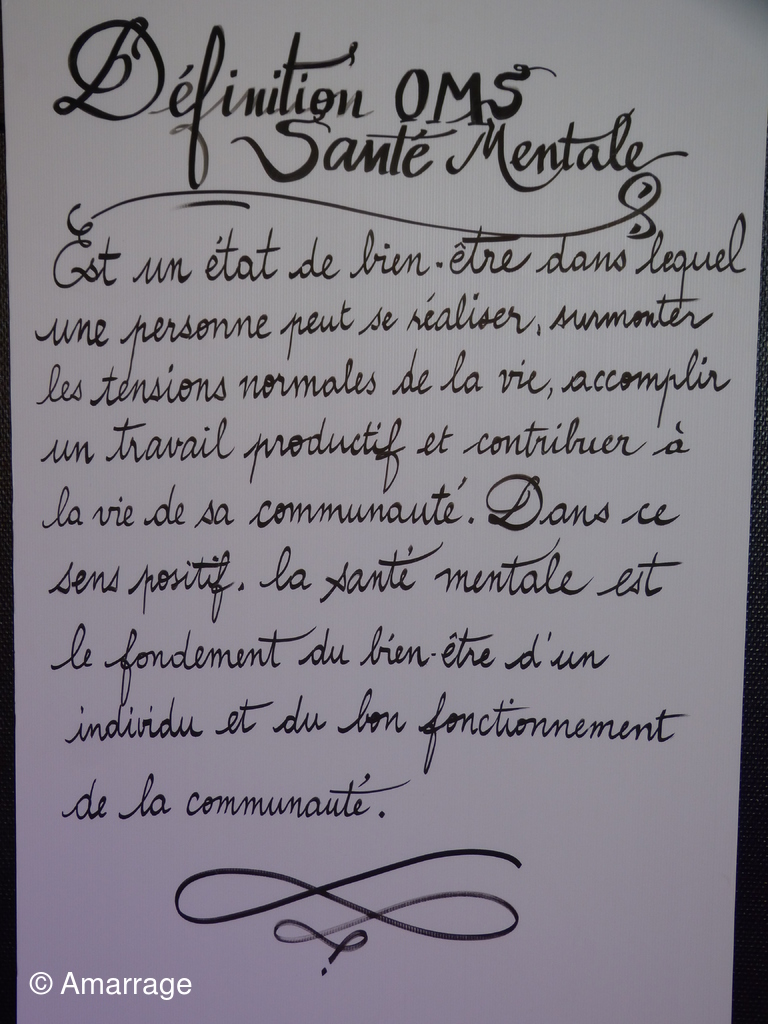 Définition OMS
Santé Mentale
Est un état de bien-être dans lequel
une personne peut se réaliser, surmonter
les tensions normales de la vie, accomplir
un travail productif et contribuer à
la vie de sa communauté. Dans ce
sens positif. la santé mentale est
le fondement du bien-être d'un
individu et du bon fonctionnement
de la communauté.
© Amarrage